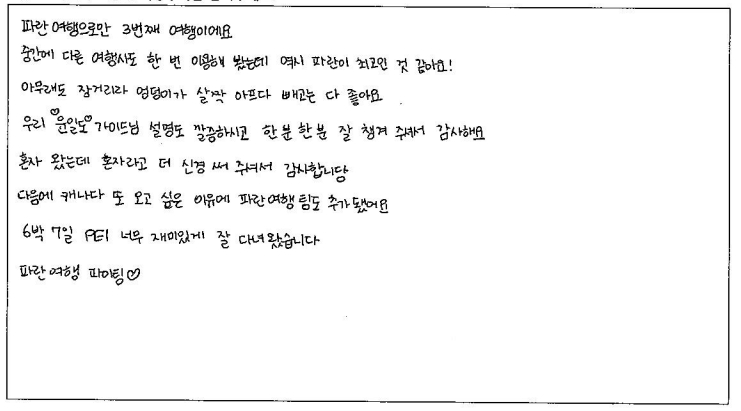 파란여행으로만 3번째 여행이에요
중간에 다른 여행사도 한 번 이용해 봤는데 역시 파란이 최고인 것 같아요!
아무래도 장거리라 엉덩이가 살짝 아프다 빼고는 다 좋아요
우리 ♡윤일도♡ 가이드님 설명도 깔끔하시고 한분 한분 잘 챙겨 주셔서 감사해요
혼자 왔는데 혼자라고 더 신경 써 주셔서 감사합니당
다음에 캐나다 또 오고 싶은 이유에 파란여행 팀도 추가 됐어요
6박 7일 PEI 너무 재미있게 잘 다녀왔습니다
파란여행 파이팅♡